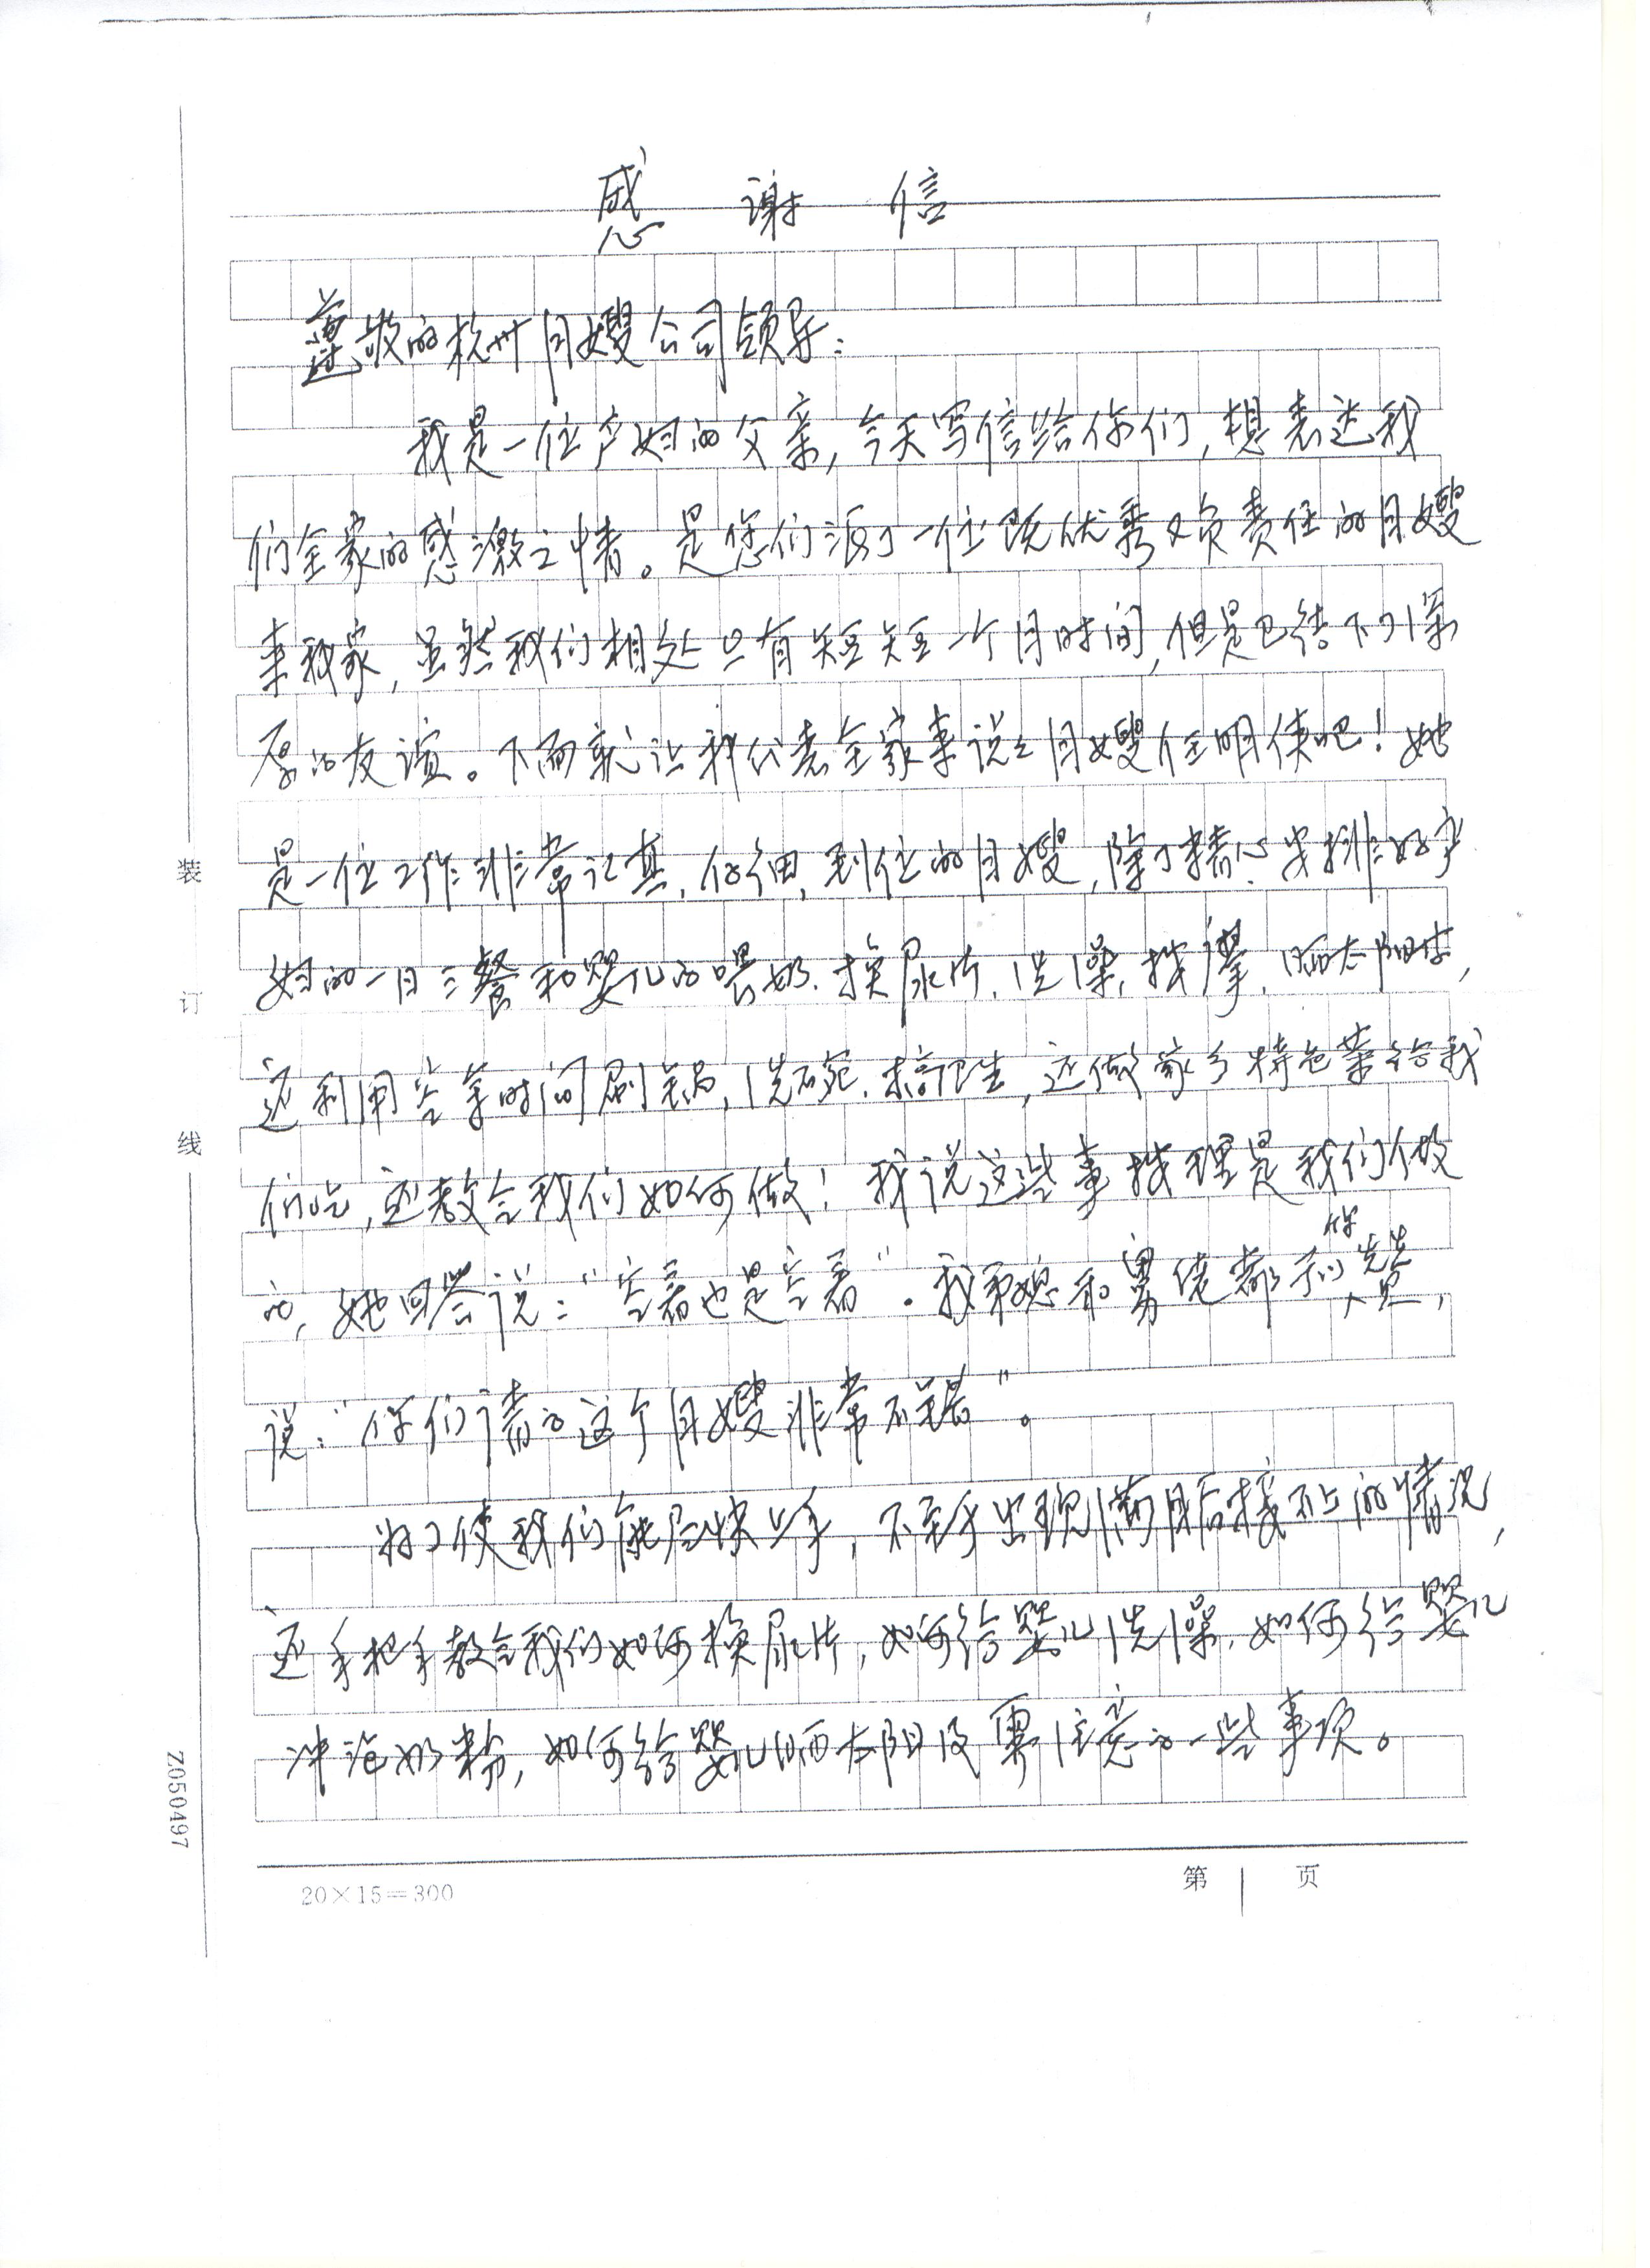 感谢信
尊敬的杭州月嫂公司领导：
我是一位产妇的父亲，今天写信给你们，想表达我
们全家的感激之情。是您们派了一位既优秀又负责任的月嫂
来我家，虽然我们相处只有短短一个月时间，但是已结下了深
厚的友谊。下面就让我代表全家来说说月嫂任明侠吧！她
是一位工作非常认真、仔细、到位的月嫂，除了精心安排好产
妇的一日三餐和婴儿的喂奶、换尿片、洗澡、按摩、晒太阳等，
还利用空余时间刷锅、洗碗、搞卫生，还做家乡特色菜给我
们吃，还教会我们如何做！我说这些事按理是我们做
的，她回答说：“空着也是空着”。我亲戚和舅佬都称赞，
说：“你们请的这个月嫂非常不错”。
为了使我们能尽快上手，不至于出现满月后接不上的情况，
还手把手教会我们如何换尿片，如何给婴儿洗澡，如何给婴儿
冲泡奶粉，如何给婴儿晒太阳及要注意的一些事项。
装
订
线
Z050497
20×15=300
第 1 页